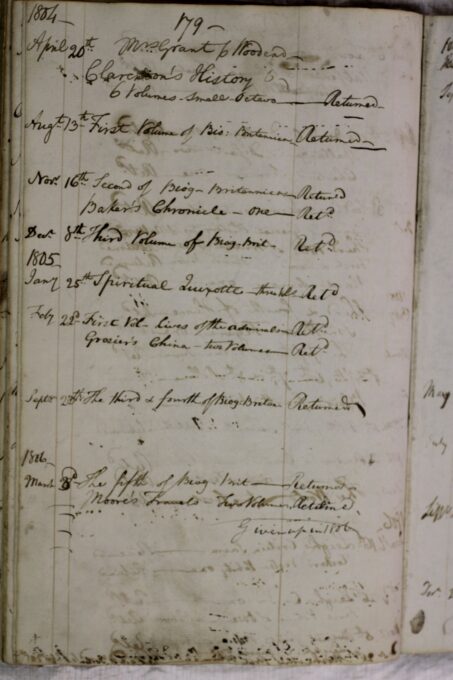 1804
179
April 20th Mrs Grant Woodend
Clarendon's History
6 Volumes small Octavo Returned
Augt 13th First Volume of Bio: Britannica Returned
Novr 16th Second of Biog- Britannica Returnd
Baker's Chronicle - one Retd
Decr 8th Third Volume of Biog- Brit- Retd
1805
Jany 25th Spiritual Quixotte Retd
Feby 22d First Vol- lives of the admirals Retd
Grosier's China - two Volumes Retd
Septr The third & fourth of Biog- Britan Returned
1806
March The fifth of Biog- Brit- Returned
Moore's Travels - Two Volum
Given up in 1806
May